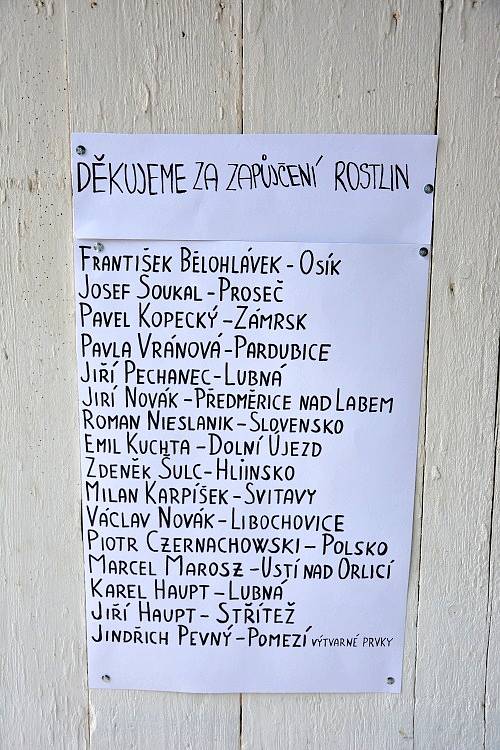 DĚKUJEME ZA ZAPŮJČENÍ ROSTLIN
FRANTIŠEK BĚLOHLÁVEK - OSÍK
JOSEF SOUKAL - PROSEČ
PAVEL KOPECKÝ - ZÁMRSK
PAVLA VRÁNOVÁ - PARDUBICE
JIŘÍ PECHANEC - LUBNÁ
JIRÍ NOVÁK - PŘEDMĚRICE NAD LABEM
ROMAN NIESLANIK - SLOVENSKO
EMIL KUCHTA - DOLNÍ ÚJEZD
ZDENĚK ŠULC - HLIINSKO
MILAN KARPÍŠEK - SVITAVY
VÁCLAV NOVÁK - LIBOCHOVICE
PIOTR CZERNACHOWSKI - POLSKO
MARCEL MAROSZ - USTÍ NAD ORLICÍ
KAREL HAUPT - LUBNÁ
JIŘÍ HAUPT - STŘÍTEŽ
JINDŘICH PEVNÝ - POMEZÍ VÝTVARNÉ PRVKY